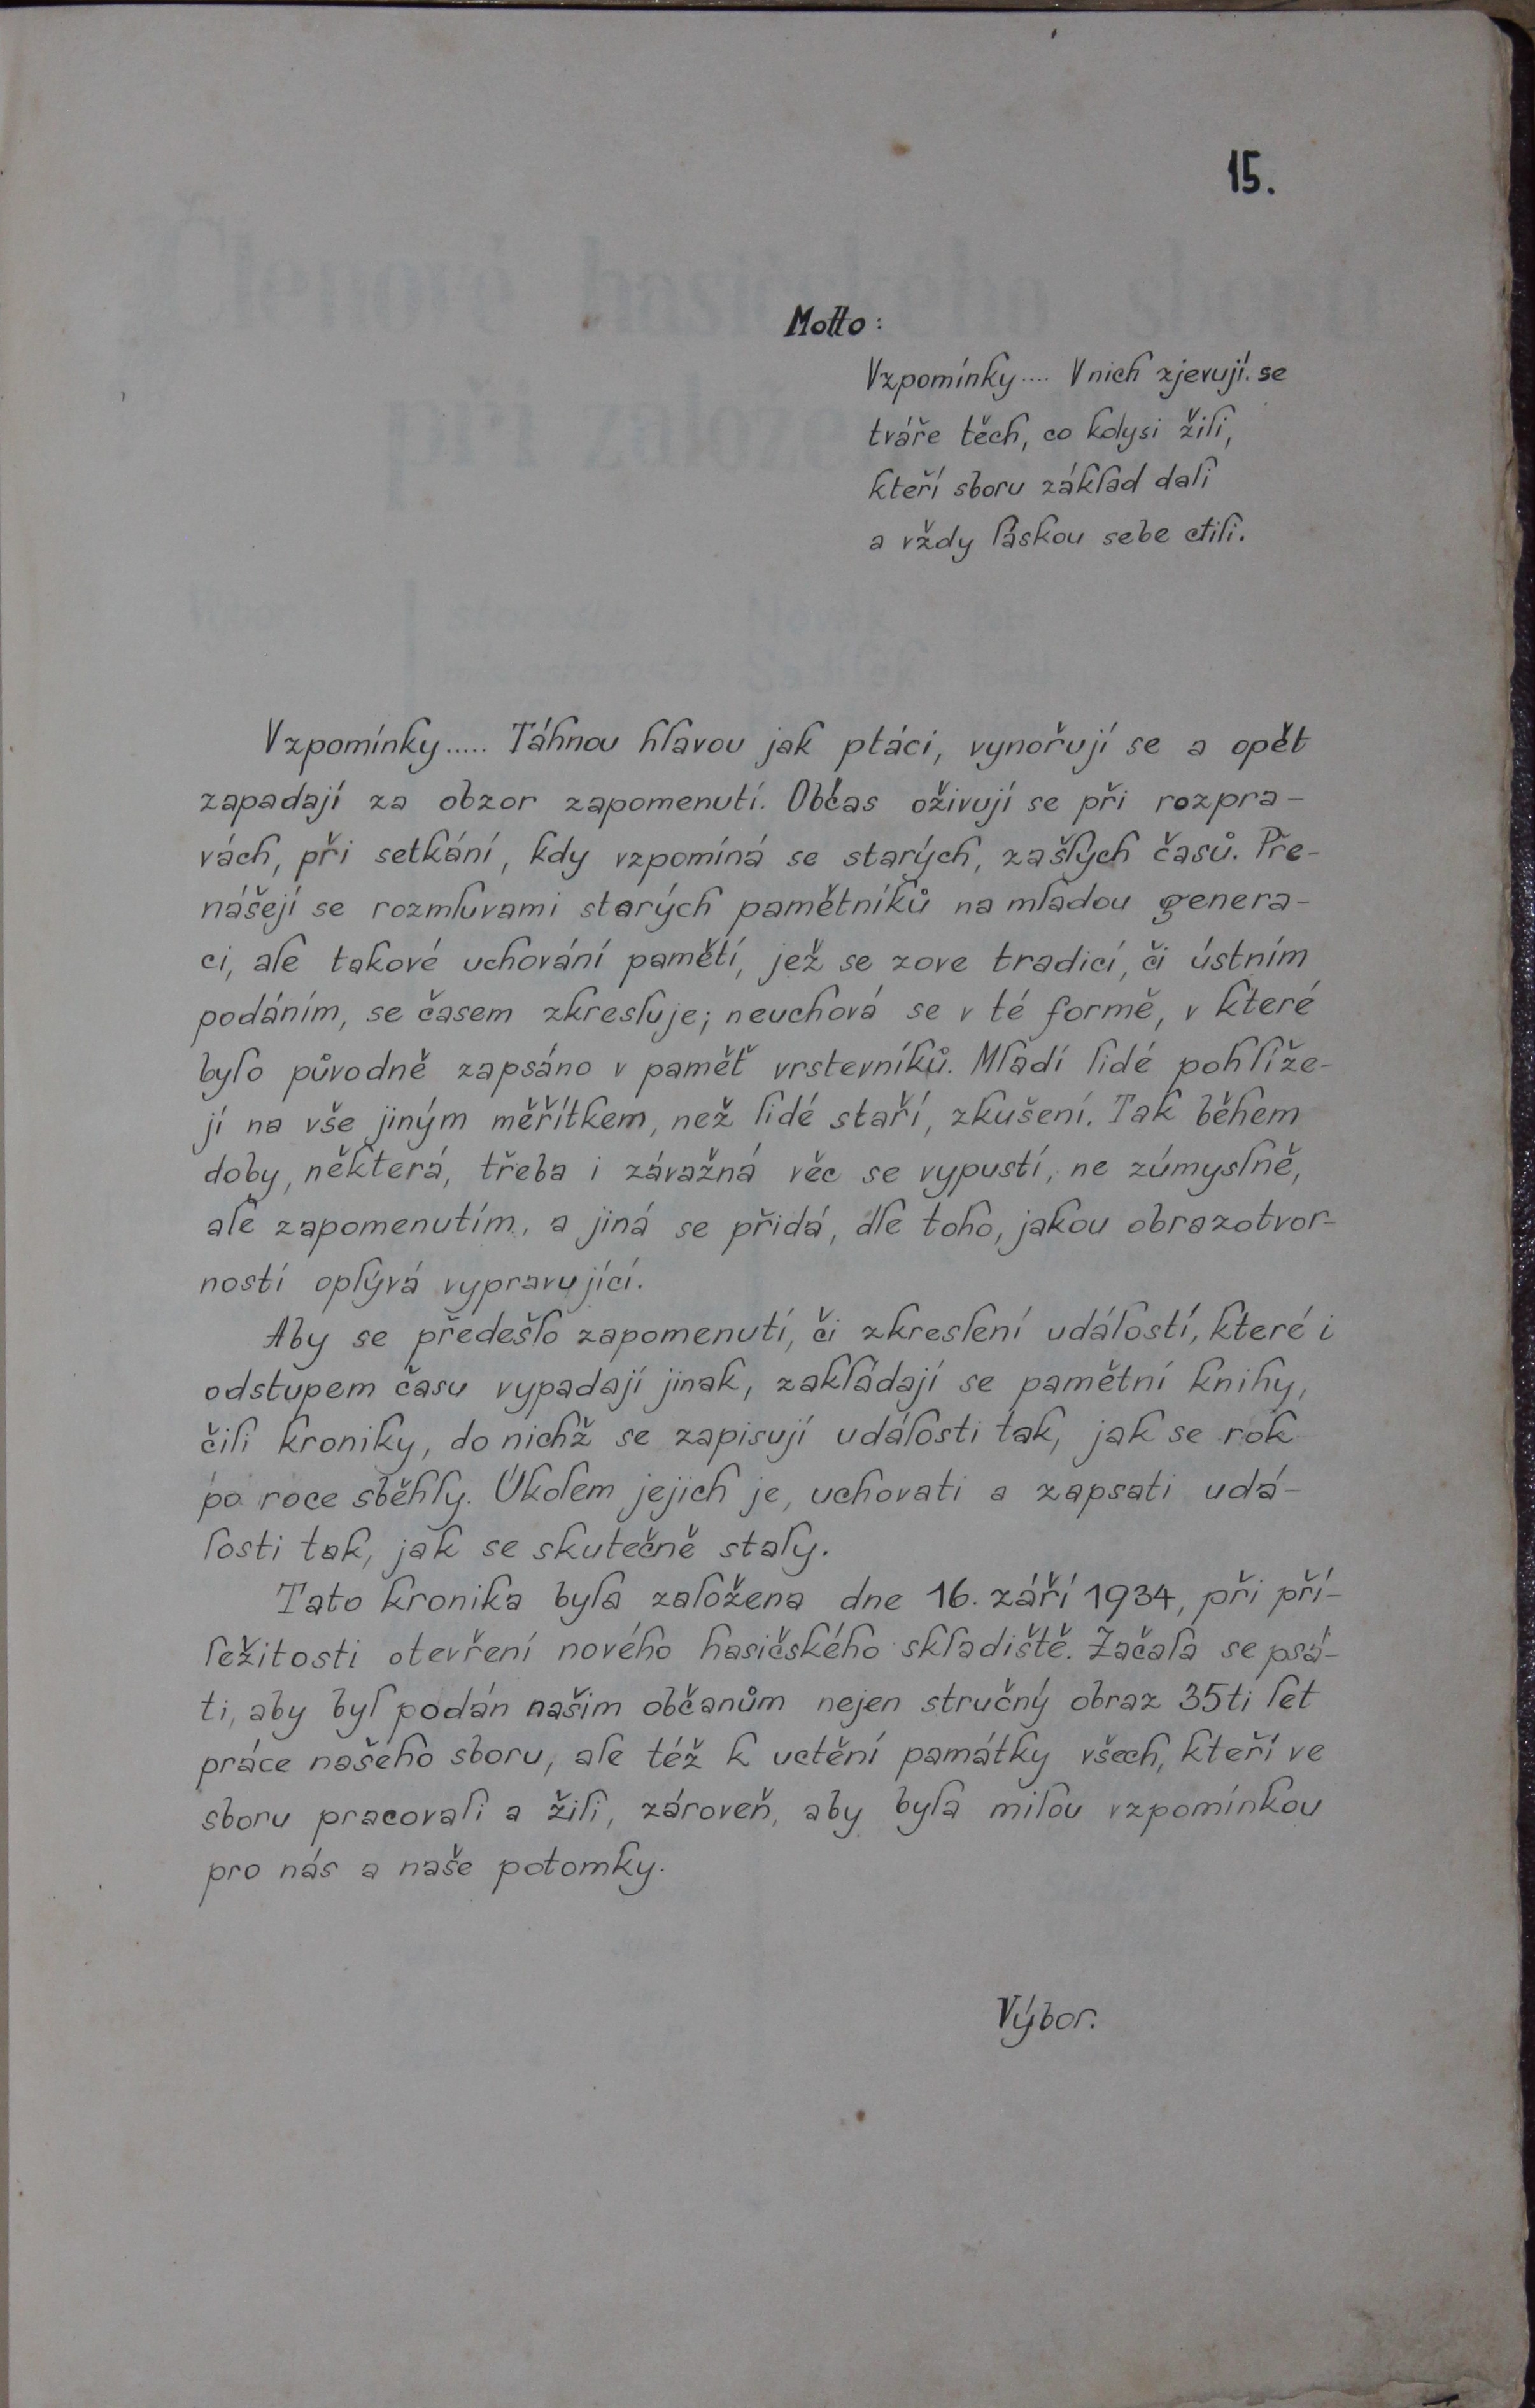 15.
Motto:
Vzpomínky.... V nich zjevují se
tváře těch, co kdysi žili,
kteří sboru základ dali
a vždy láskou sebe ctili.
Vzpomínky..... Táhnou hlavou jak ptáci, vynořují se a opět
zapadají za obzor zapomenutí. Občas oživují se při rozpra-
vách, při setkání, kdy vzpomíná se starých, zašlých časů. Pře-
nášejí se rozmluvami starých pamětníků na mladou genera-
ci, ale takové uchování pamětí, jež se zove tradicí, či ústním
podáním, se časem zkresluje; neuchová se v té formě, v které
bylo původně zapsáno v paměť vrstevníků. Mladí lidé pohlíže-
jí na vše jiným měřítkem, než lidé staří, zkušení. Tak během
doby, některá, třeba i závažná věc se vypustí, ne zúmyslně,
ale zapomenutím, a jiná se přidá, dle toho, jakou obrazotvor-
ností oplývá vypravující.
Aby se předešlo zapomenutí, či zkreslení událostí, které i
odstupem času vypadají jinak, zakládají se pamětní knihy,
čili kroniky, do nichž se zapisují události tak, jak se rok
po roce sběhly. Úkolem jejich je, uchovati a zapsati udá-
losti tak, jak se skutečně staly.
Tato kronika byla založena dne 16. září 1934, při pří-
ležitosti otevření nového hasičského skladiště. Začala se psá-
ti, aby byl podán našim občanům nejen stručný obraz 35ti let
práce našeho sboru, ale též k uctění památky všech, kteří ve
sboru pracovali a žili, zároveň, aby byla milou vzpomínkou
pro nás a naše potomky.
Výbor.